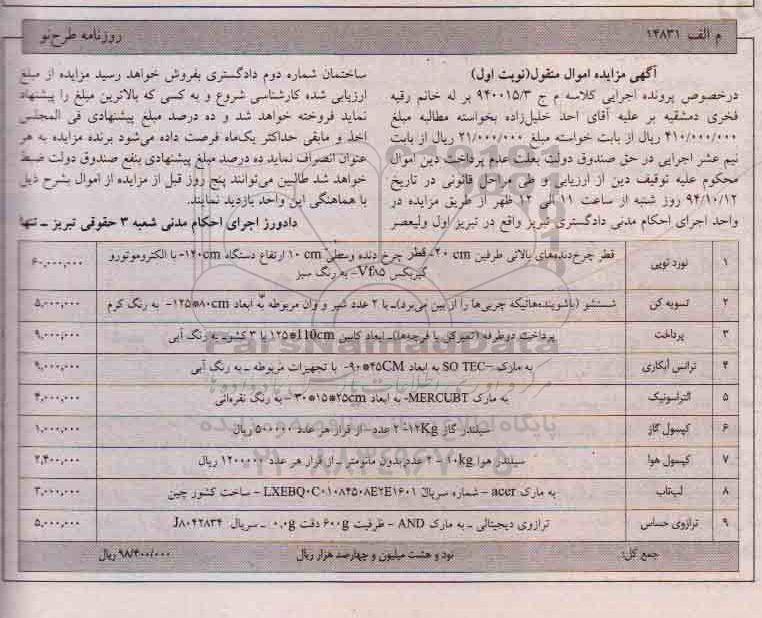 م الف ۱۴۸۳۱
روزنامه طرح‌نو
آگهی مزایده اموال منقول(نوبت اول)
درخصوص پرونده اجرایی کلاسه م ج ۹۴۰۰۱۵/۳ بر له خانم رقیه
فخری دمشقیه بر علیه آقای احد خلیل‌زاده بخواسته مطالبه مبلغ
۴۱۰/۰۰۰/۰۰۰ ریال از بابت خواسته مبلغ ۲۱/۰۰۰/۰۰۰ ریال از بابت
نیم عشر اجرایی در حق صندوق دولت بعلت عدم پرداخت دین اموال
محکوم علیه توقیف دین از ارزیابی و طی مراحل قانونی در تاریخ
۹۴/۱۰/۱۲ روز شنبه از ساعت ۱۱ الی ۱۲ ظهر از طریق مزایده در
واحد اجرای احکام مدنی دادگستری تبریز واقع در تبریز اول ولیعصر
ساختمان شماره دوم دادگستری بفروش خواهد رسید مزایده از مبلغ
ارزیابی شده کارشناسی شروع و به کسی که بالاترین مبلغ را پیشنهاد
نماید فروخته خواهد شد و ده درصد مبلغ پیشنهادی فی المجلس
اخذ و مابقی حداکثر یک‌ماه فرصت داده می‌شود برنده مزایده به هر
عنوان انصراف نماید ده درصد مبلغ پیشنهادی بنفع صندوق دولت ضبط
خواهد شد طالبین می‌توانند پنج روز قبل از مزایده از اموال بشرح ذیل
با هماهنگی این واحد بازدید نمایند.
دادورز اجرای احکام مدنی شعبه ۳ حقوقی تبریز ــ تنها
۱ نورد توپی قطر چرخ‌دنده‌های بالائی طرفین ۲۰cm- قطر چرخ دنده وسطی ۱۰cm ارتفاع دستگاه ۱۲۰cm- با الکتروموتورو گیربکس Vf۸۵- به رنگ سبز ۶۰,۰۰۰,۰۰۰
۲ تسویه کن شستشو (باشوینده‌هائیکه چربی‌ها را از بین می‌برد)ـ با ۲ عدد شیر و وان مربوطه به ابعاد ۸۰cm*۱۲۵- به رنگ کرم ۵,۰۰۰,۰۰۰
۳ پرداخت پرداخت دوطرفه (تمیزکن با فرچه‌ها)ـ ابعاد کابین 110cm*۱۲۵ با ۳ کشوـ به رنگ آبی ۹,۰۰۰,۰۰۰
۴ ترانس آبکاری به مارک SO TEC– به ابعاد ۴۵CM*۹۰- با تجهیزات مربوطه ـ به رنگ آبی ۹,۰۰۰,۰۰۰
۵ التراسونیک به مارک MERCUBT- به ابعاد ۲۵cm*۱۵*۳۰ - به رنگ نقره‌ائی ۴,۰۰۰,۰۰۰
۶ کپسول گاز سیلندر گاز ۱۲Kg- ۲ عدد - از قرار هر عدد ۵۰۰۰۰۰ ریال ۱,۰۰۰,۰۰۰
۷ کپسول هوا سیلندر هوا ۱۰kg – ۲ عدد بدون مانومتر ـ از قرار هر عدد ۱۲۰۰۰۰۰ ریال ۲,۴۰۰,۰۰۰
۸ لپ‌تاپ به مارک acer – شماره سریال LXEBQ۰C۰۱۰۸۴۵۰۸E۲E۱۶۰۱ - ساخت کشور چین ۳,۰۰۰,۰۰۰
۹ ترازوی حساس ترازوی دیجیتالی ـ به مارک AND - ظرفیت ۶۰۰g دقت ۰.۰g ـ سریال J۸۰۴۲۸۳۴ ۵,۰۰۰,۰۰۰
جمع کل: نود و هشت میلیون و چهارصد هزار ریال ۹۸/۴۰۰/۰۰۰ ریال
ParsNamadData